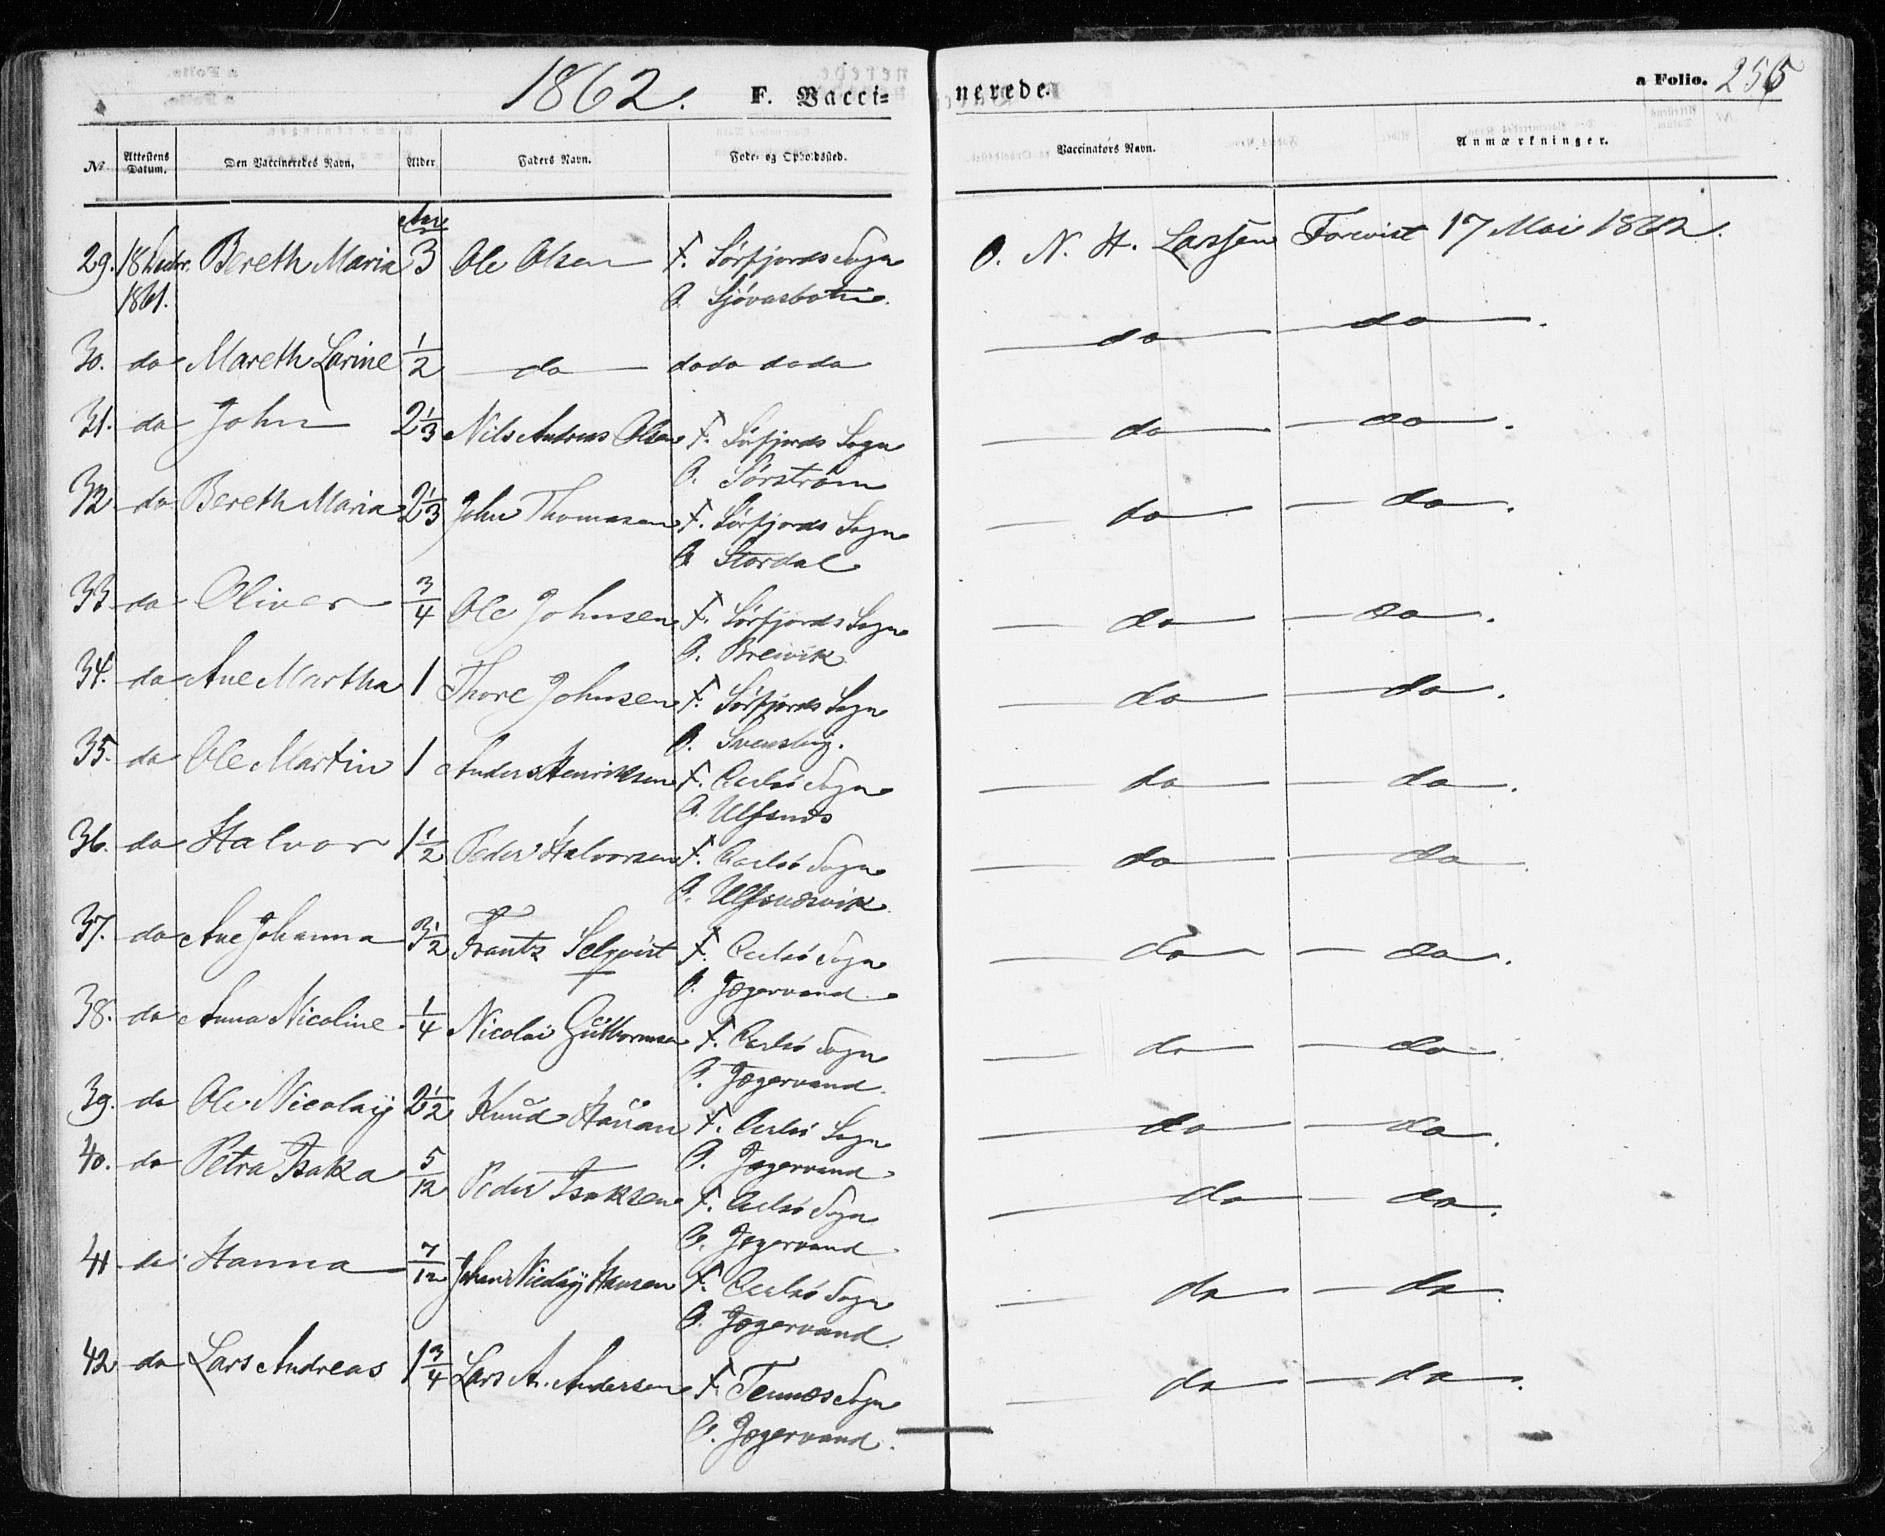 1862. F. Vacci= nerede. a Folio. 255
No Attestens Datum. Den Vaccineredes Navn, Alder Faders Navn. Føde- og Opholdssted. Vaccinatørs Navn. Anmærkninger.
Aar
29. 18 Bereth Maria 3 Ole Olsen F. Sörfjords Sogn O. N. H. Larssen Forevist 17 Mai 1862.
1861. O. Sjövasbotn
30. do Mareth Larine 1/2 do do do do do do do.
31. do John 2 1/3 Nils Andreas Olsen F. Sörfjords Sogn do do.
O. Sörström
32. do Bereth Maria 2 1/3 John Thomasen F. Sörfjords Sogn do do.
O. Stordal
33. do Oliver 3/4 Ole Johnsen F. Sörfjords Sogn do do.
O. Breivik
34. do Ane Martha 1 Thore Johnsen F. Sörfjords Sogn do do.
O. Svensby.
35. do Ole Martin 1 Anders Henriksen F. Carlsö Sogn do do.
O. Ulfsnes
36. do Halvor 1 1/2 Peder Halvorsen F. Carlsö Sogn do do.
O. Ulfsnesvik
37. do Ane Johanna 3 1/2 Frantz Selqvist F. Carlsö Sogn do do.
O. Jægervand
38. do Anna Nicoline 1/4 Nicolai Guttormsen F. Carlsö Sogn do do.
O. Jægervand
39. do Ole Nicolaij 2 1/2 Knud Hauan F. Carlsö Sogn do do.
O. Jægervand
40. do Petra Isaka 5/12 Peder Isaksen F. Carlsö Sogn do do.
O. Jægervand
41 do Hanna 7/12 Johan Nicolaij Hansen F. Carlsö Sogn do do.
O. Jægervand
42 do Lars Andreas 1 3/4 Lars A. Andersen F. Tennes Sogn do do.
O. Jægervand.